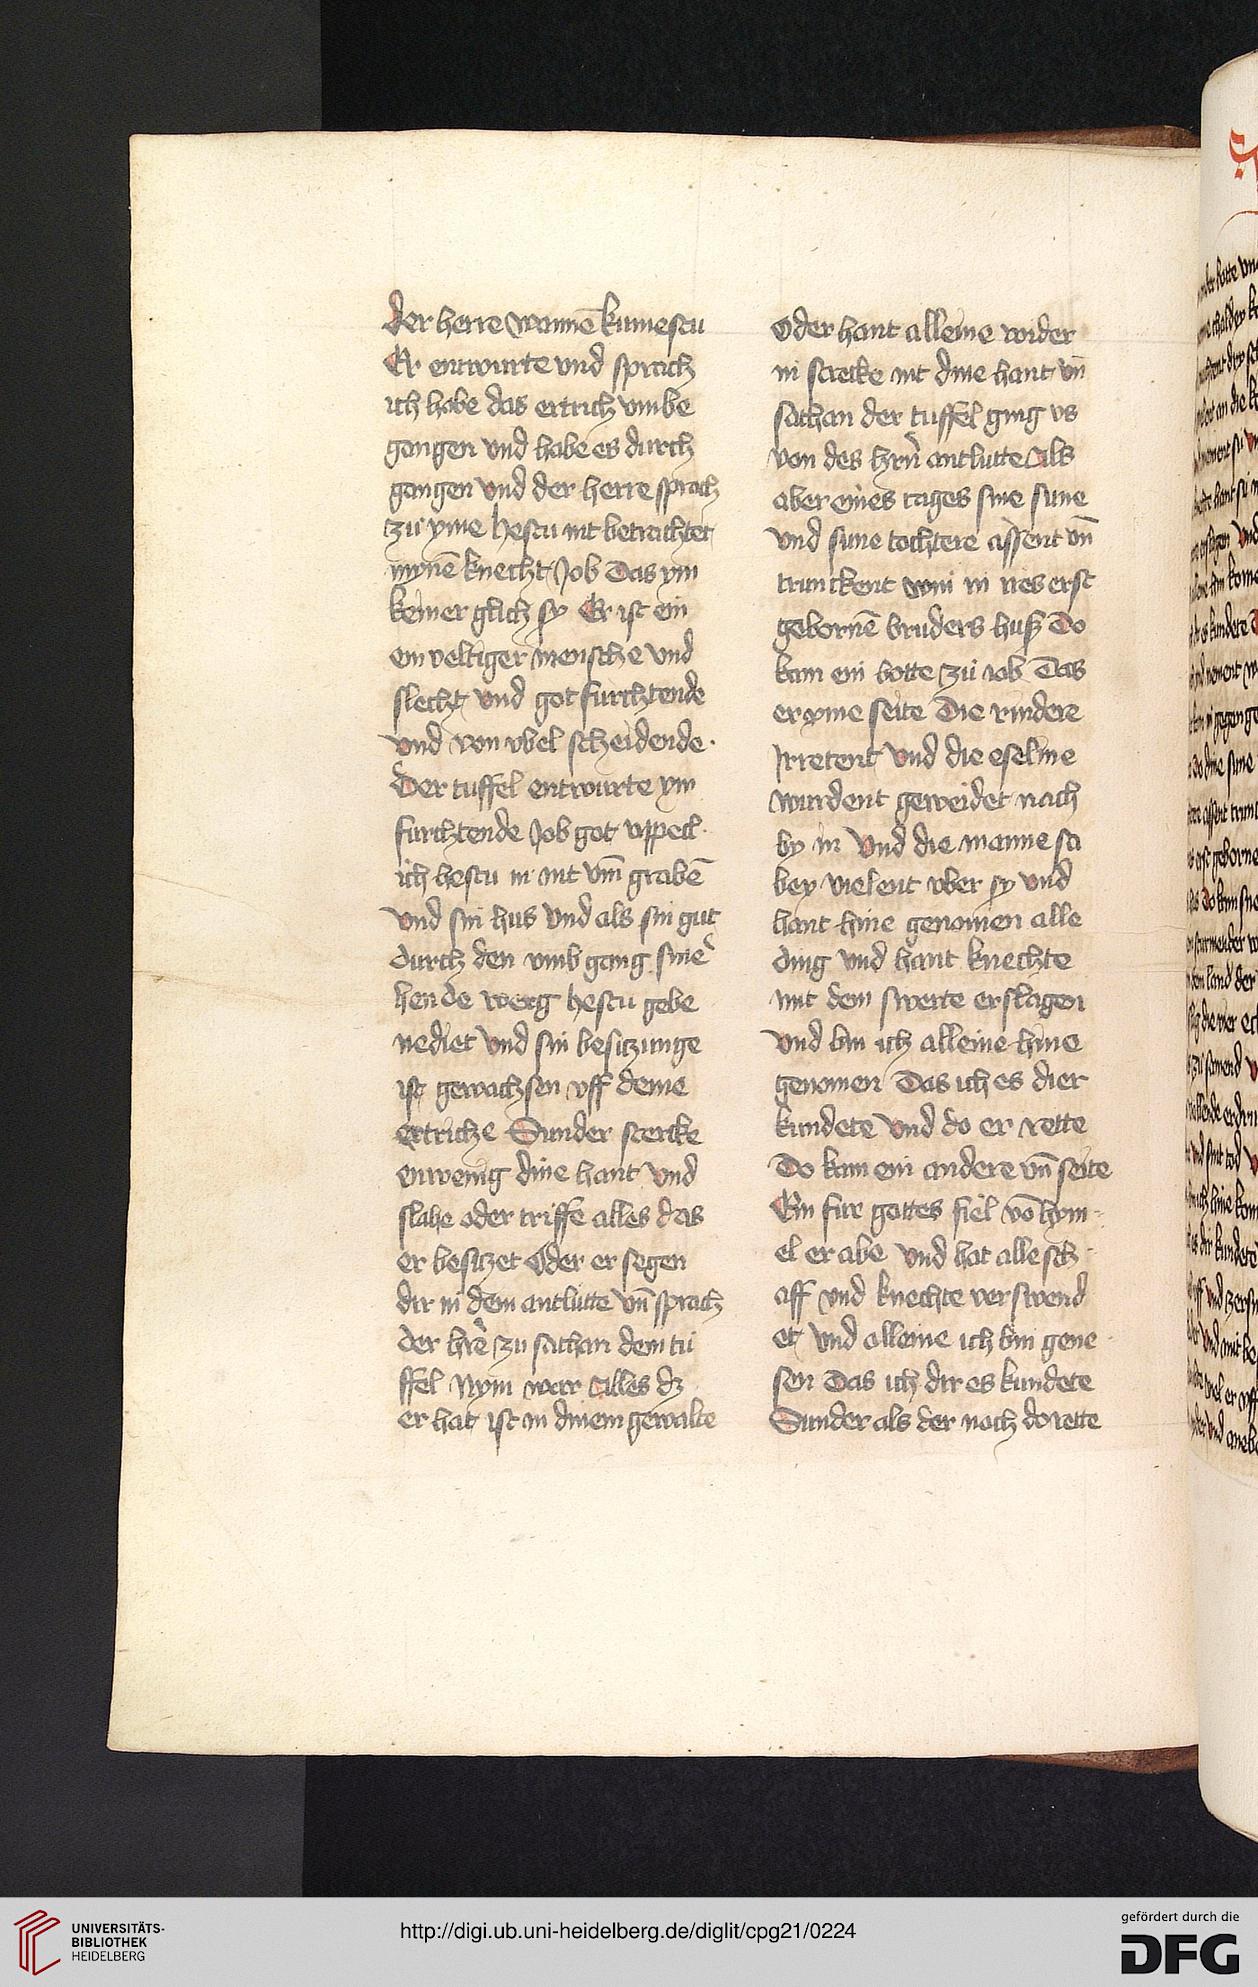 Der herre wannē kumestu
Er entwurte vnd sprach
ich habe das ertrich vmbe
gangen vnd habe es durch
gangen vnd der herre sprach
zů yme hestu nit betrachtet
mynē knecht Job Das ym
keiner glich sy Er ist ein
einveltiger mensche vnd
slecht vnd got furchtende
vnd von vbel scheidende
Der tuffel entwurte ym
furchtende Job got vppecl
ich hestu in nit vm̄ grabē
vnd sin hus vnd als sin gut
durch den vmb gang sine
hende werg hestu gebe
nediet vnd sin besitzunge
ist gewachsen vff deme
ertriche Sunder strecke
enwenig dine hant vnd
slahe oder triffe alles das
er besitzet Oder er segen
dir in dem antlutte vn̄ sprach
der hre zu sathan dem tu
ffel Nym war Alles dz
er hat ist in dinem gewalte
Oder hant alleine wider
in strecke nit dine hant vn̄
sathan der tuffel ging vs
von des hrn antlutte Als
aber eines tages sine sune
vnd sine tochtere assent vn̄
trunckent win in ires erst
gebornē bruders huß Do
kam ein botte zů iob Das
er yme seite Die rindere
Irretent vnd die eseline
wurdent geweidet nach
by in Vnd die manne sa
bey vielent vber sy vnd
hant hine genomen alle
ding vnd hant knechte
mit dem swerte erslagen
vnd bin ich alleine hine
genomen Das ich es dier
kundete vnd do er rette
Do kam ein andere vn̄ seite
Ein fur gottes fiel vō hym-
el er abe vnd hat alle sch
aff vnd knechte verswend
et vnd alleine ich bin gene
sen Das ich dir es kundete
Sunder als der noch do rette
UNIVERSITÄTS-
BIBLIOTHEK
HEIDELBERG
http://digi.ub.uni-heidelberg.de/diglit/cpg21/0224
gefördert durch die
DFG